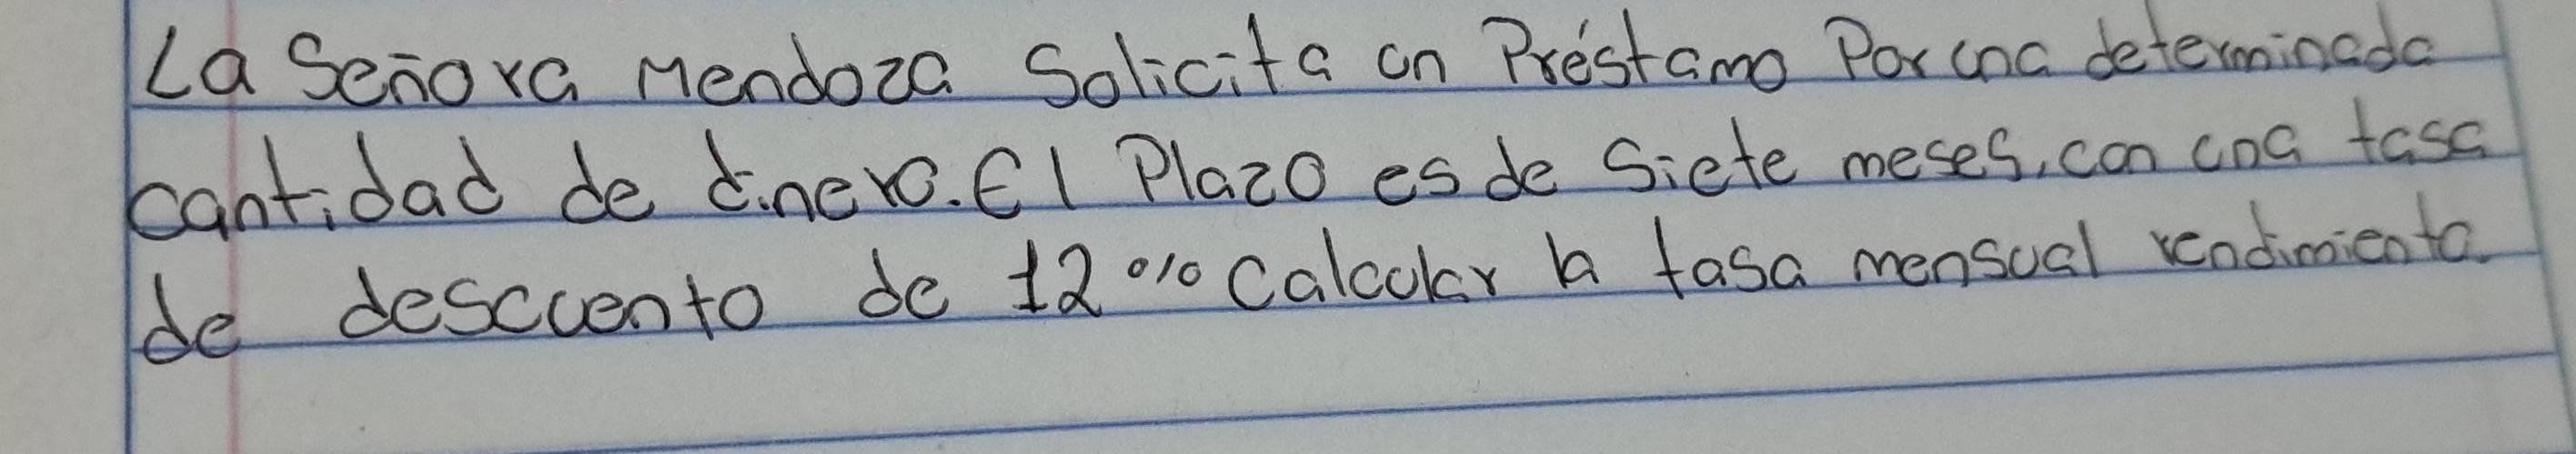 La Señora Mendoza Solicita un Préstamo Por una determinada
cantidad de dinero. El Plazo es de Siete meses, con una tasa
de descuento de 12% Calcular la tasa mensual rendimiento.